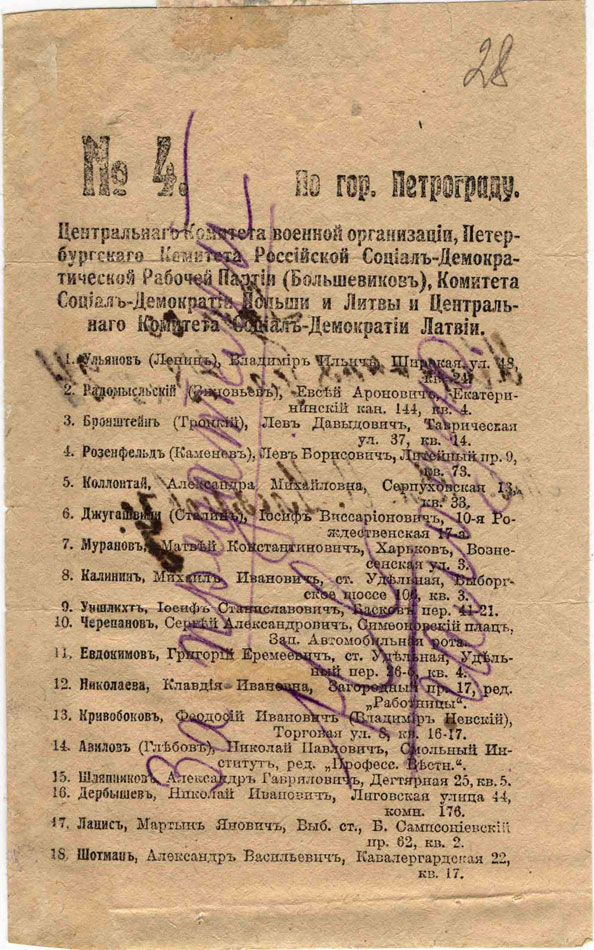 28
№ 4. По гор. Петрограду.
Центральнаго Комитета военной организаціи, Петер-
бургскаго Комитета Россійской Соціалъ-Демокра-
тической Рабочей Партіи (Большевиковъ), Комитета
Соціалъ-Демократіи Польши и Литвы и Централь-
наго Комитета Соціалъ-Демократіи Латвіи.
1. Ульяновъ (Ленинъ), Владиміръ Ильичъ, Широкая ул. 48,
кв. 24.
2. Радомысльскій (Зиновьевъ), Евсѣй Ароновичъ, Екатери-
нинскій кан. 144, кв. 4.
3. Бронштейнъ (Троцкій), Левъ Давыдовичъ, Таврическая
ул. 37, кв. 14.
4. Розенфельдъ (Каменевъ), Левъ Борисовичъ, Литейный пр. 9,
кв. 73.
5. Коллонтай, Александра Михайловна, Серпуховская 13,
кв. 33.
6. Джугашвили (Сталинъ), Іосифъ Виссаріоновичъ, 10-я Ро-
ждественская 17-а.
7. Мурановъ, Матвѣй Константиновичъ, Харьковъ, Возне-
сенская ул. 3.
8. Калининъ, Михаилъ Ивановичъ, ст. Удѣльная, Выборг-
ское шоссе 106, кв. 3.
9. Уншлихтъ, Іосифъ Станиславовичъ, Басковъ пер. 41-21.
10. Черепановъ, Сергѣй Александровичъ, Симеоновскій плацъ,
Зап. Автомобильная рота.
11. Евдокимовъ, Григорій Еремеевичъ, ст. Удѣльная, Удѣль-
ный пер. 26-б, кв. 4.
12. Николаева, Клавдія Ивановна, Загородный пр. 17, ред.
„Работницы“.
13. Кривобоковъ, Феодосій Ивановичъ (Владиміръ Невскій),
Торговая ул. 8, кв. 16-17.
14. Авиловъ (Глѣбовъ), Николай Павловичъ, Смольный Ин-
ститутъ, ред. „Професс. Вѣстн.“.
15. Шляпниковъ, Александръ Гавриловичъ, Дегтярная 25, кв. 5.
16. Дербышевъ, Николай Ивановичъ, Лиговская улица 44,
комн. 176.
17. Лацисъ, Мартынъ Яновичъ, Выб. ст., Б. Сампсоніевскій
пр. 62, кв. 2.
18. Шотманъ, Александръ Васильевичъ, Кавалергардская 22,
кв. 17.
За предателя